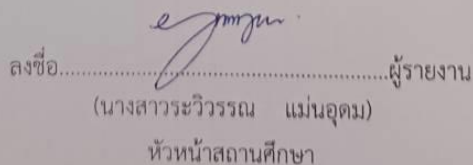 ลงชื่อ........................................................ผู้รายงาน
(นางสาวระวิวรรณ แม่นอุดม)
หัวหน้าสถานศึกษา